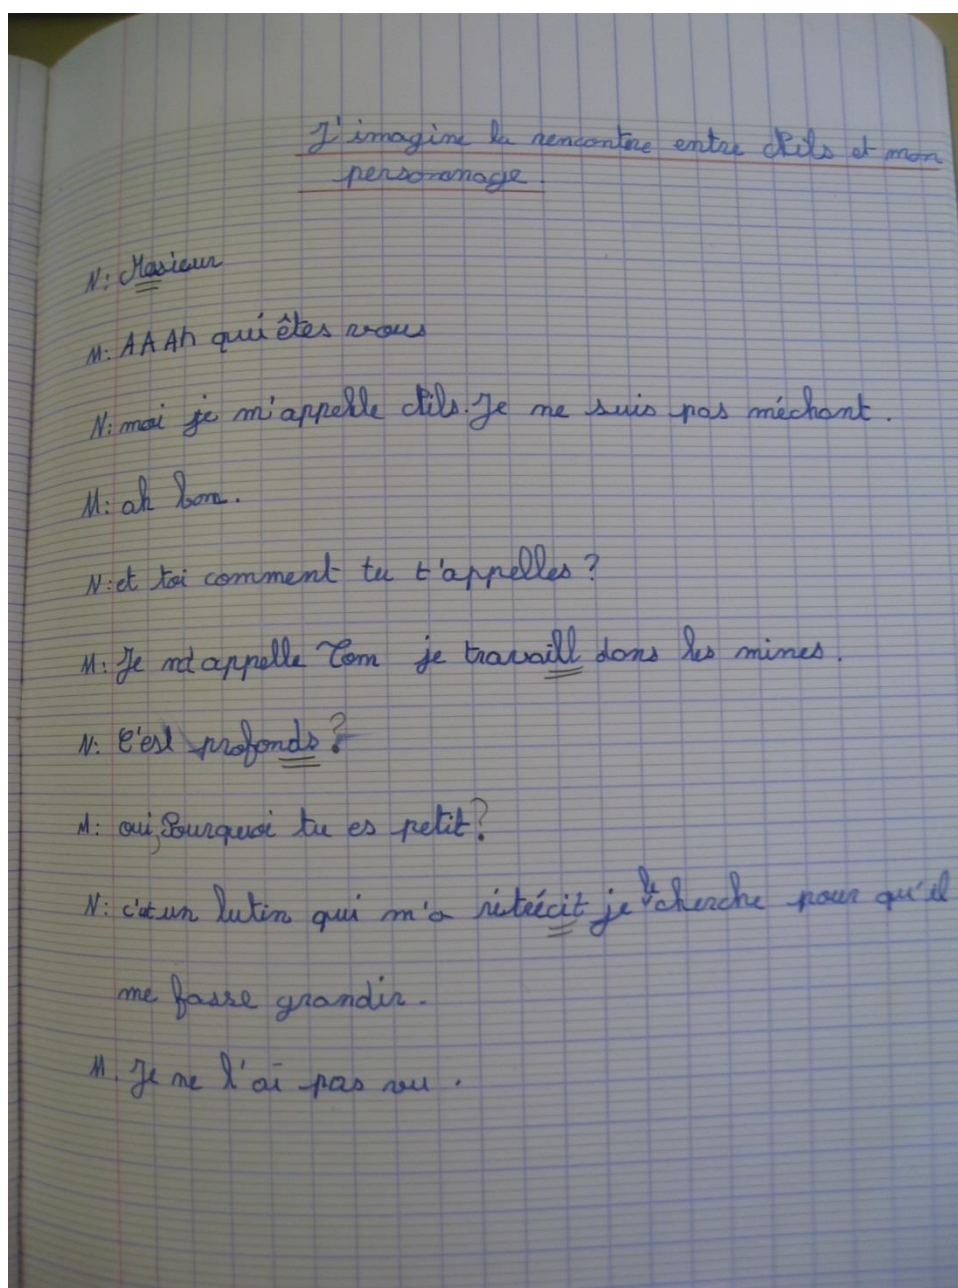 J'imagine la rencontre entre Nils et mon
personnage.
N: Masieur
M: AAAh qui êtes vous
N: moi je m'appelle Nils. Je ne suis pas méchant.
M: ah bon.
N: et toi comment tu t'appelles ?
M: Je m'appelle Tom je travaill dans les mines.
N: C'est profonds ?
M: oui, Pourquoi tu es petit ?
N: c'est un lutin qui m'a rétrécit je le cherche pour qu'il
me fasse grandir.
M. Je ne l'ai pas vu.